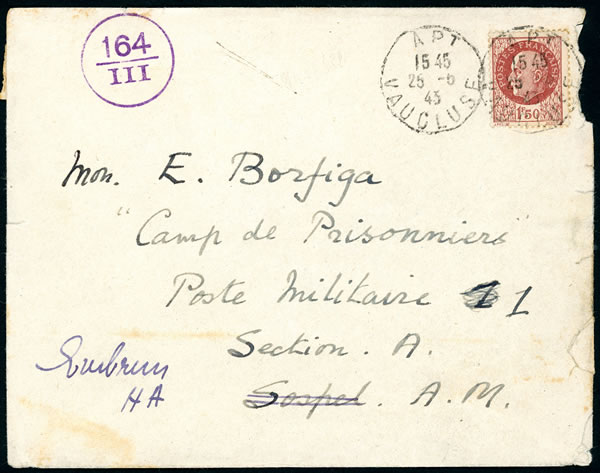 164
III
APT
15 45
25 -6
43
VAUCLUSE
POSTES FRANÇAISES
1F50
APT
15 45
25
43
Mon. E. Borfiga
"Camp de Prisonniers"
Poste Militaire 1
Section. A.
Sospel. A.M.
Embrun
HA